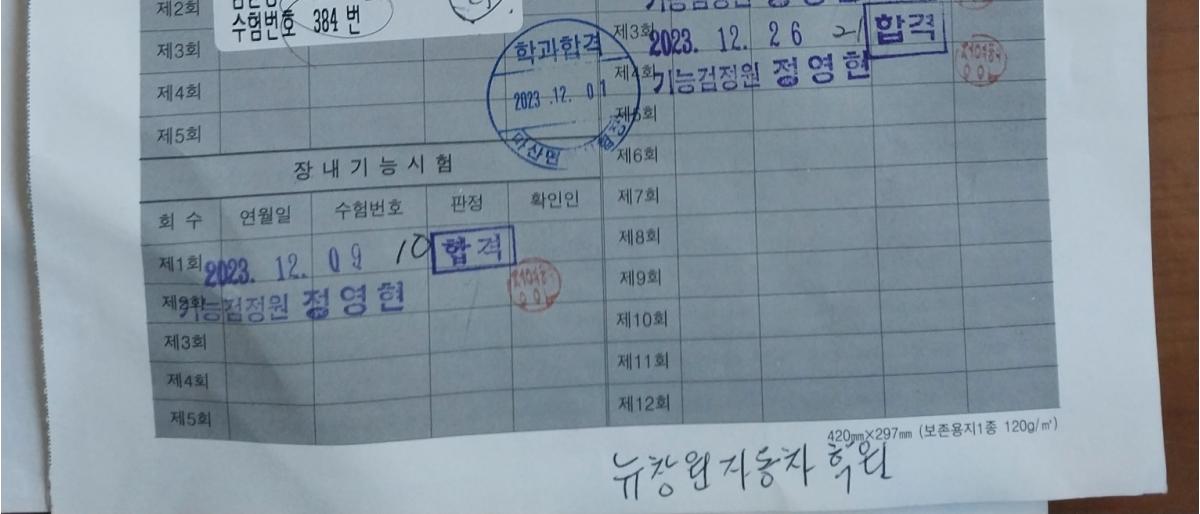 제2회
수험번호 384 번
제3회
제4회
제5회
학과합격
2023.12.01
마산면
장내기능시험
회 수 연월일 수험번호 판정 확인인
제1회 2023. 12. 09 10 합격
제2회 기능검정원 정영현
제3회
제4회
제5회
제3회 2023. 12. 26 21 합격
제4회 기능검정원 정영현
제5회
제6회
제7회
제8회
제9회
제10회
제11회
제12회
420㎜×297㎜ (보존용지1종 120g/㎡)
뉴창원자동차 학원